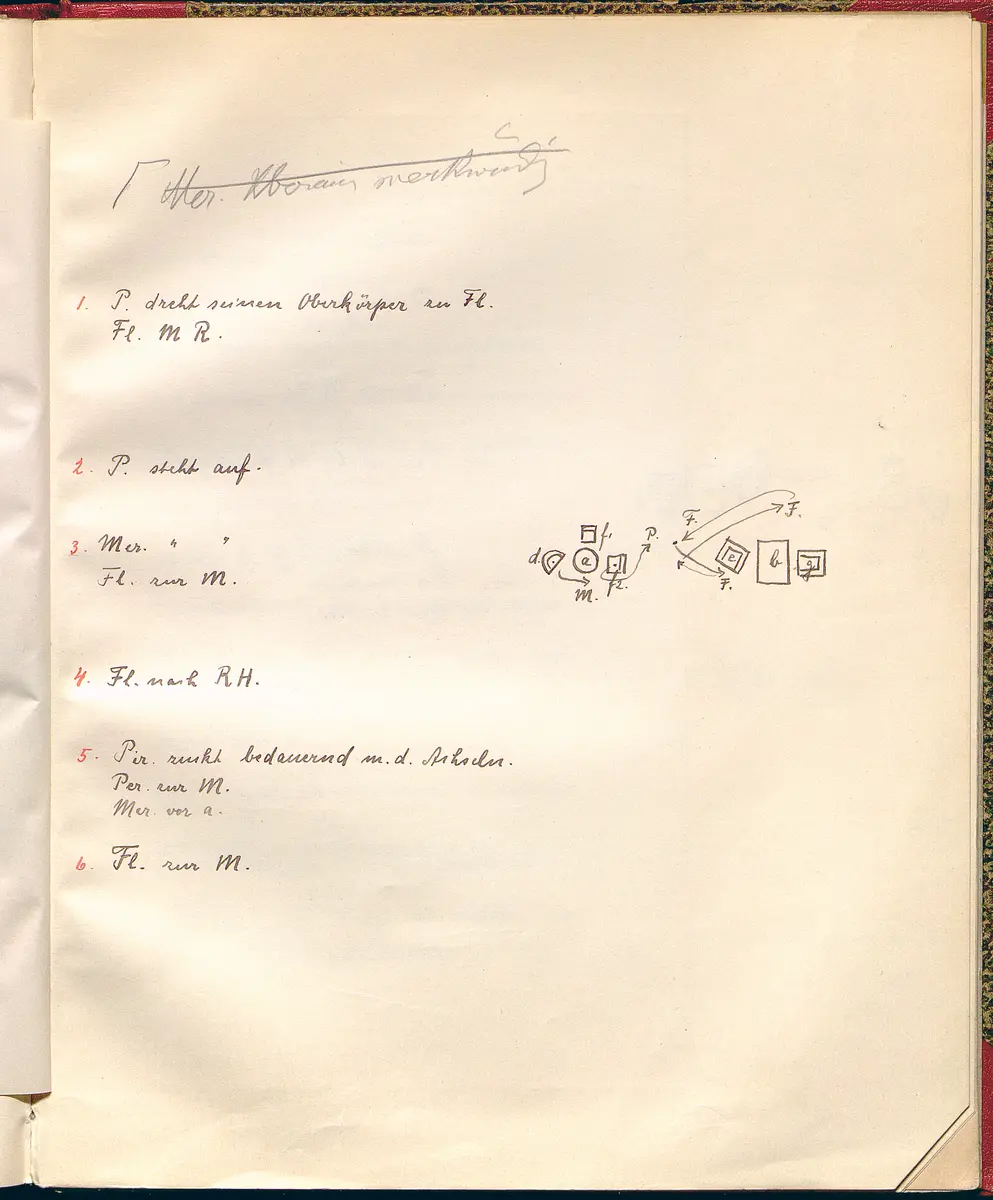 Mer. überaus merkwürdig
1. P. dreht seinen Oberkörper zu Fl.
Fl. M R.
2. P. steht auf.
3. Mer. " "
Fl. zur M.
d. f1 a f2. M. P. F. F. F. e b g
4. Fl. nach RH.
5. Pir. zuckt bedauernd m. d. Achseln.
Per. zur M.
Mer. vor a.
6. Fl. zur M.